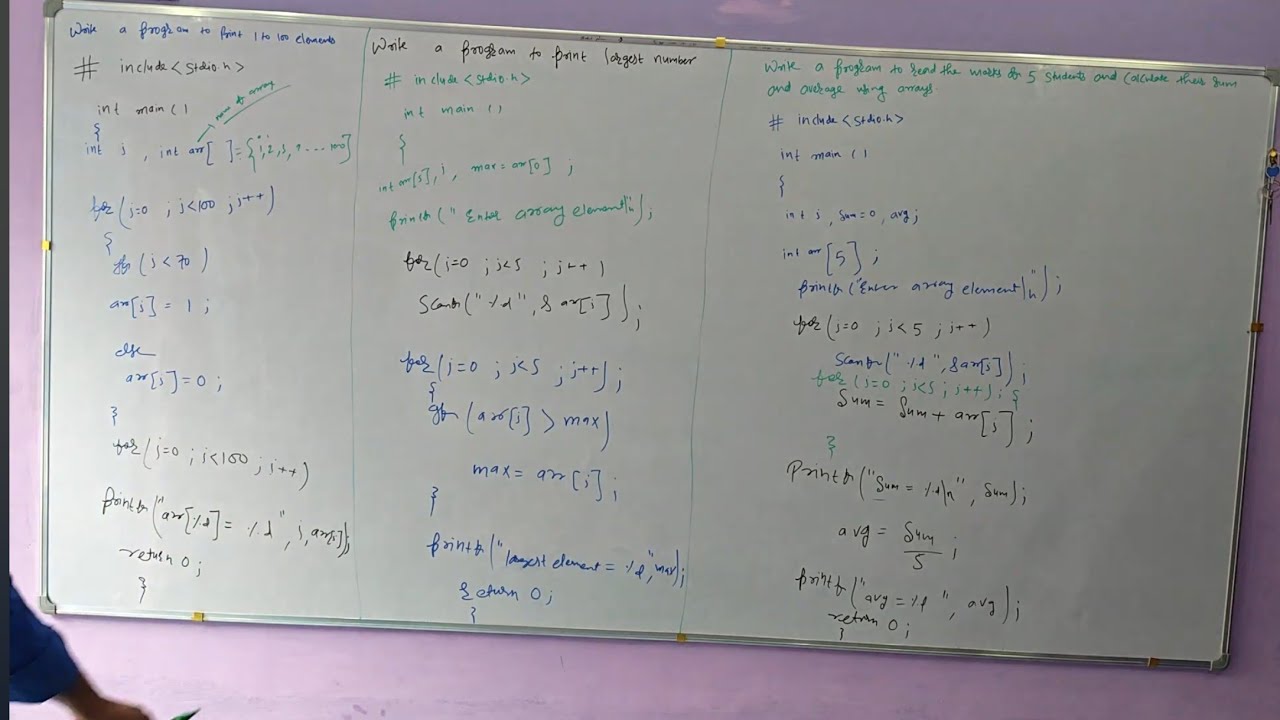 Write a program to print 1 to 100 elements
# include<stdio.h>
int main ( )
name of array
{
int j , int arr[ ]={1,2,3,4....100}
for(j=0 ; j<100 ; j++)
{
if (j < 70 )
arr[j] = 1 ;
else
arr[j]=0 ;
}
for(j=0 ; j<100 ; j++)
printf("arr[%d]= %d", j, arr[j]);
return 0 ;
}
Write a program to print largest number
# include <stdio.h>
int main ( )
{
int arr[5], j , max = arr[0] ;
printf(" Enter array element\n);
for(j=0 ; j<5 ; j++)
scanf(" %d", & arr[j]);
for(j=0 ; j<5 ; j++) ;
{
if (arr[j] > max)
max = arr [j] ;
}
printf("largest element = %d", max);
return 0 ;
}
Write a program to read the marks of 5 students and calculate their sum
and average using arrays.
# include <stdio.h>
int main ( )
{
int j , sum=0 , avg ;
int arr[5] ;
printf ("Enter array element\n");
for(j=0 ; j<5 ; j++)
scanf(" %d ", &arr[j]);
for (j=0 ; j<5 ; j++) ; {
Sum = Sum + arr[j] ;
}
printf("Sum = %d\n", Sum);
avg = Sum/5 ;
printf("avg = %f ", avg);
return 0 ;
}